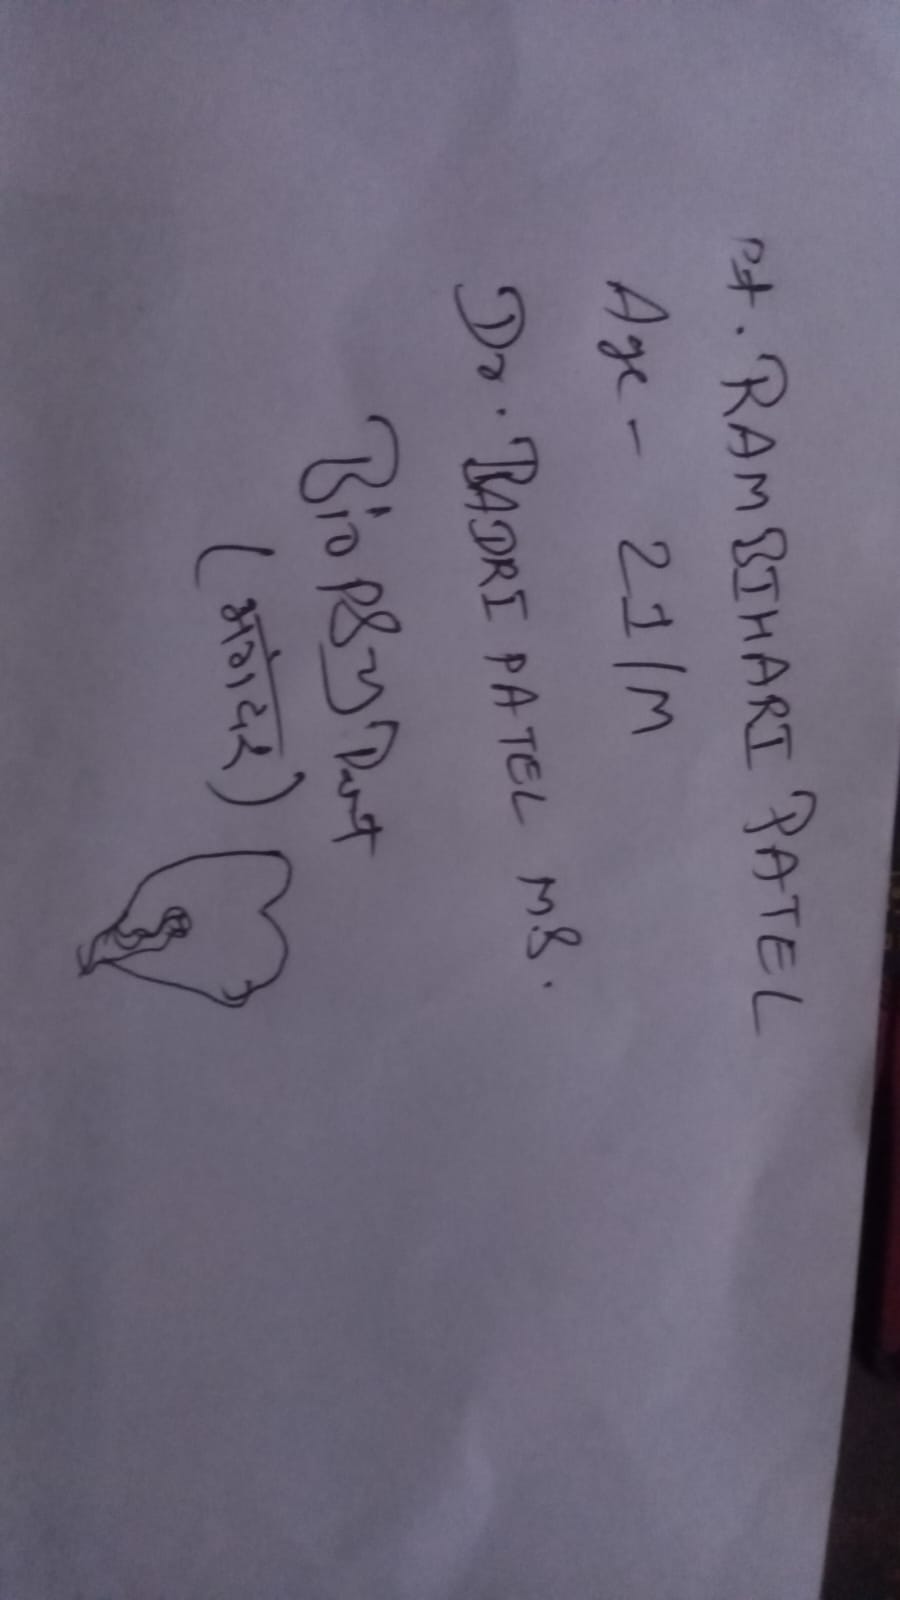 Pt. RAM BIHARI PATEL
Age - 21/M
Dr. BADRI PATEL MS.
Biopsy Part
(भगंदर)